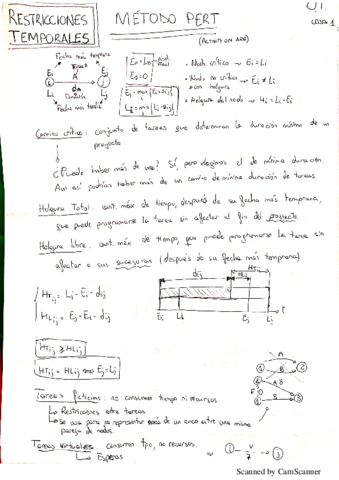 RESTRICCIONES TEMPORALES
MÉTODO PERT
(ACTIVITY ON ARC)
U.1.
CLASE 1
Fecha más temprana
Tarea
Ei
A
Ej
i
j
Li
dij
Lj
Duración
Fecha más tardía
E0 = 0
Ej = max {Ei + dij}
Li = min {Lj - dij}
• Nodo crítico → Ei = Li
• Nodo no crítico → Ei ≠ Li
o con holgura
• Holgura del nodo → Hi = Li - Ei
Camino crítico: conjunto de tareas que determinan la duración mínima de un
proyecto
¿Puede haber más de uno? Sí, pero elegimos el de mínima duración.
Aun así podrían haber más de un camino de mínima duración de tareas
Holgura Total: cant. máx. de tiempo, después de su fecha más temprana,
que puede programarse la tarea sin afectar el fin del proyecto.
Holgura libre: cant. máx. de tiempo, que puede programarse la tarea sin
afectar a sus sucesoras (después de su fecha más temprana)
HTij = Lj - Ei - dij
HLij = Ej - Ei - dij
dij
HTij
HLij
Ei
Li
Ej
Lj
t
HTij ≥ HLij
HTij = HLij ⟺ Ej = Lj
Tareas ficticias: no consumen tiempo ni recursos
→ Restricciones entre tareas
→ Se usa para no representar más de un arco entre una misma
pareja de nodos.
A
B
Tareas virtuales: consumen tpo, no recursos.
→ Esperas
i
V
7
j
Scanned by CamScanner